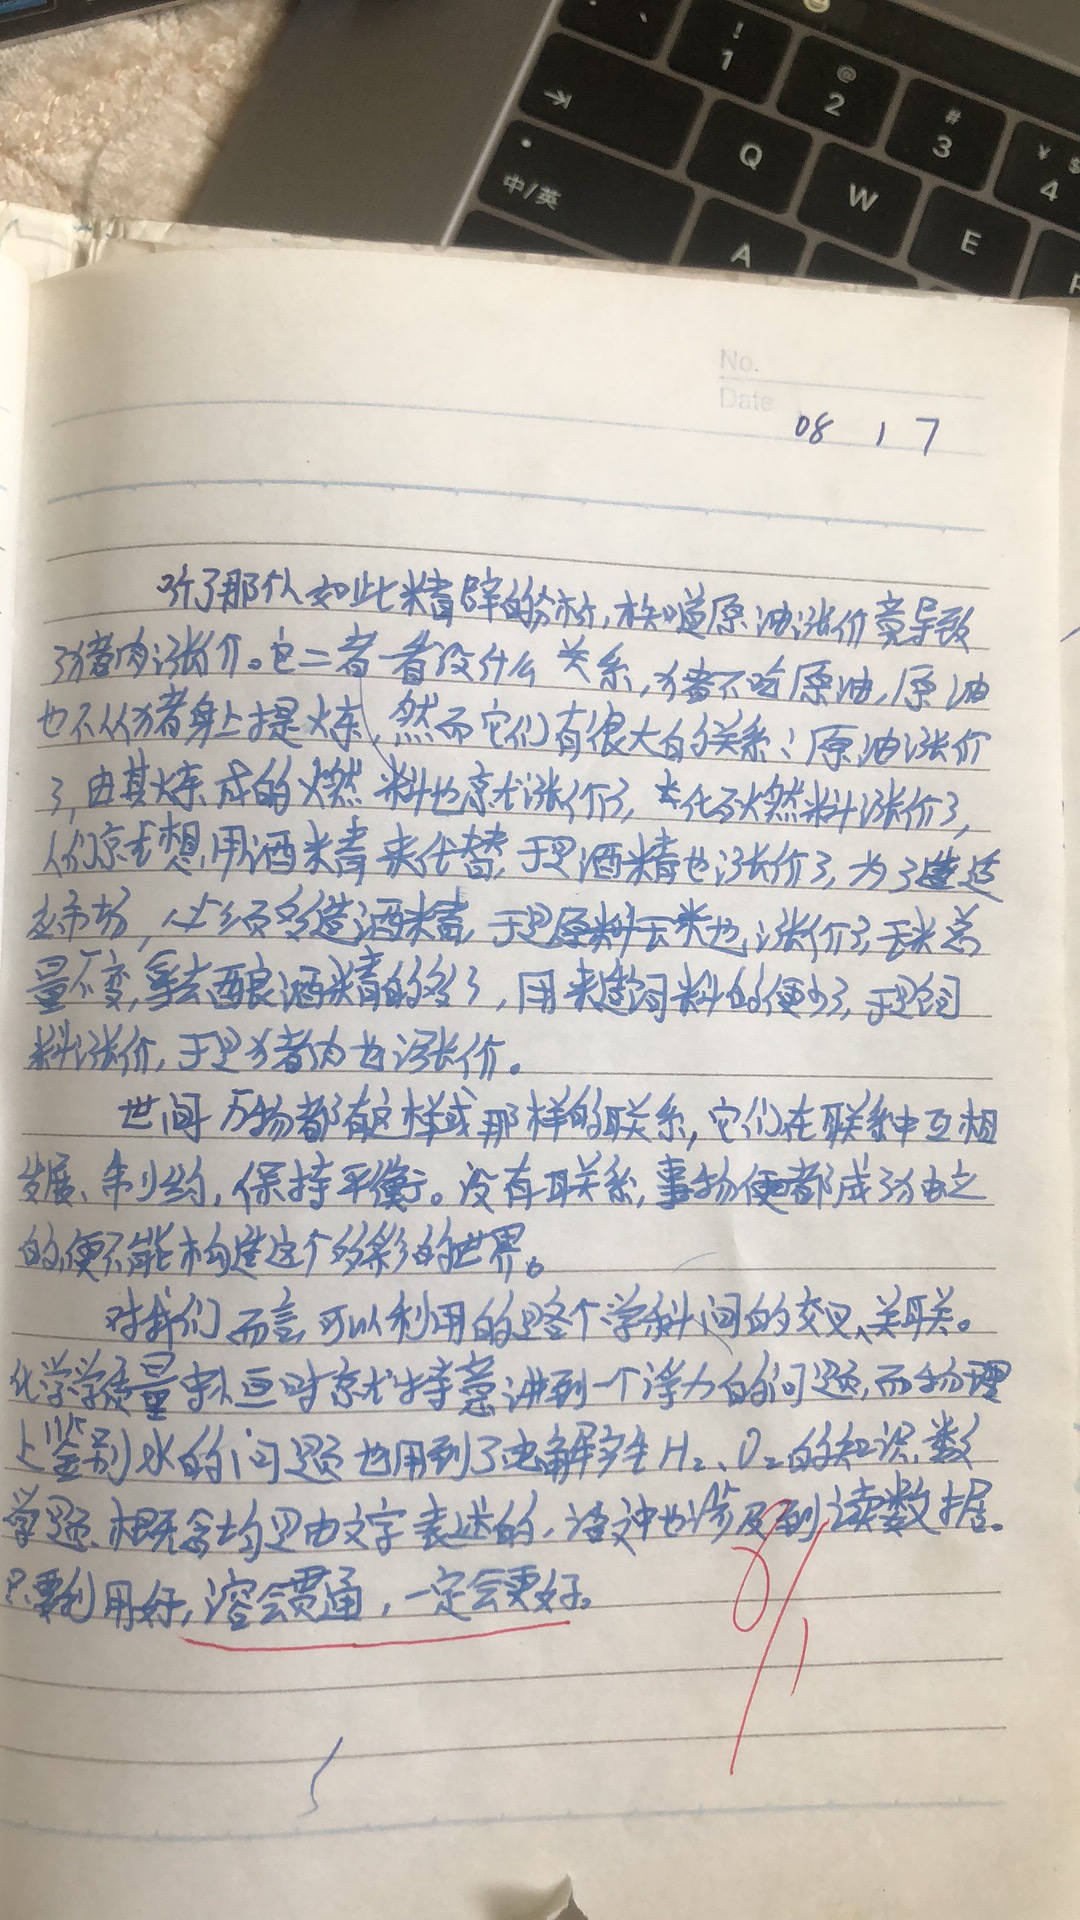 ! 1
@ 2
# 3
¥ $ 4
Q
W
E
中/英
A
No.
Date 08 1 7
听了那人如此精辟的分析,才知道原油涨价竟导致
了猪肉涨价。它二者一看没什么关系,猪不吃原油,原油
也不从猪身上提炼,然而它们有很大的关系:原油涨价
了,由其炼成的燃料也就涨价了,化石燃料涨价了,
人们就想用酒精来代替,于是酒精也涨价了,为了适
应市场,必须多造酒精,于是原料玉米也涨价了,玉米总
量不变,拿去酿酒精的多了,用来造饲料的便少了,于是饲
料涨价,于是猪肉也涨价。
世间万物都有这样或那样的联系,它们在联系中互相
发展、制约,保持平衡。没有联系,事物便都成了
的,便不能构造这个多彩的世界。
对我们而言,可以利用的是各个学科间的交叉、关联。
化学学质量守恒时就特意讲到一个浮力的问题,而物理
上鉴别水的问题也用到了电解产生H₂、O₂的知识,数
学题、概念均是由文字表述的,语文中也涉及到读数据。
只要利用好,溶会贯通,一定会更好。